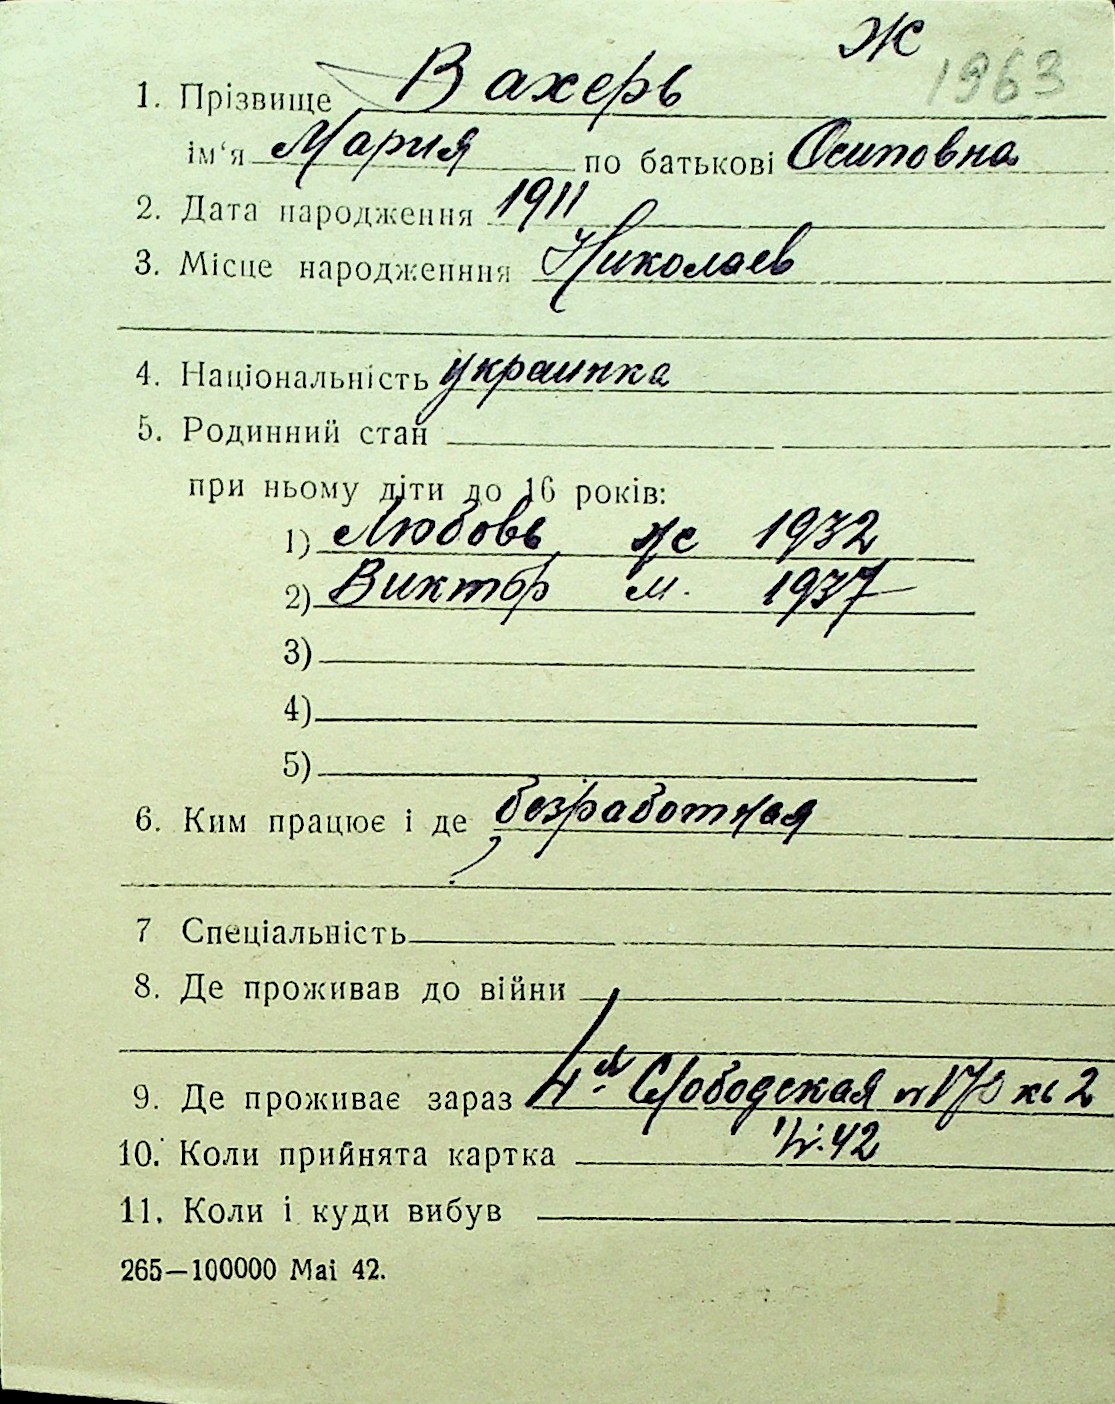 Ж
1963
1. Прізвище Вахерь
ім‘я Мария по батькові Осиповна
2. Дата народження 1911
3. Місце народженння Николаев
4. Національність украинка
5. Родинний стан
при ньому діти до 16 років:
1) Любовь ж 1932
2) Виктор м. 1937
3)
4)
5)
6. Ким працює і де безработная
7 Спеціальність
8. Де проживав до війни
9. Де проживає зараз 4я Слободская 2
10. Коли прийнята картка 42
11. Коли і куди вибув
265—100000 Mai 42.